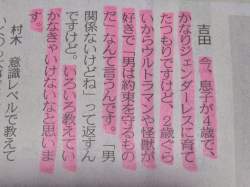 吉田 今、息子が4歳で、
かなりジェンダーレスに育て
たつもりですけど、2歳ぐら
いからウルトラマンや怪獣が
好きで「男は約束を守るもの
だ」なんて言うんです。「男
関係ないけどね」って返すん
ですけど。いろいろ教えてい
かなきゃいけないなと思いま
す。
村木 意識レベルで教えて